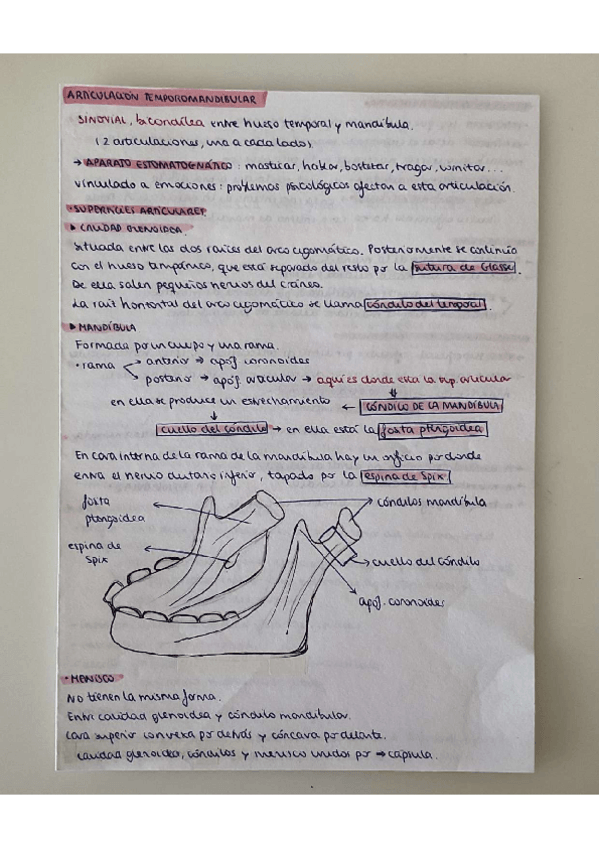 ARTICULACIÓN TEMPOROMANDIBULAR
SINOVIAL, bicondílea entre hueso temporal y mandíbula.
(2 articulaciones, una a cada lado).
→ APARATO ESTOMATOGNÁTICO: masticar, hablar, bostezar, tragar, vomitar...
vinculado a emociones: problemas psicológicos afectan a esta articulación.
• SUPERFICIES ARTICULARES
▸ CAVIDAD GLENOIDEA.
Situada entre las dos raíces del arco cigomático. Posteriormente se continúa
con el hueso timpánico, que está separado del resto por la sutura de Glasser.
De ella salen pequeños nervios del cráneo.
La raíz horizontal del arco cigomático se llama cóndilo del temporal.
▸ MANDÍBULA
Formada por un cuerpo y una rama.
• rama
anterior → apóf. coronoides
posterior → apóf. articular → aquí es donde está la sup. articular
en ella se produce un estrechamiento ← CÓNDILO DE LA MANDÍBULA
cuello del cóndilo → en ella está la fosita pterigoidea
En cara interna de la rama de la mandíbula hay un orificio por donde
entra el nervio dentario inferior, tapado por la espina de Spix
fosita pterigoidea
cóndilos mandíbula
espina de Spix
cuello del cóndilo
apóf. coronoides
• MENISCO
No tienen la misma forma.
Entre cavidad glenoidea y cóndilo mandibular.
Cara superior convexa por detrás y cóncava por delante.
cavidad glenoidea, cóndilos y menisco unidos por → cápsula.